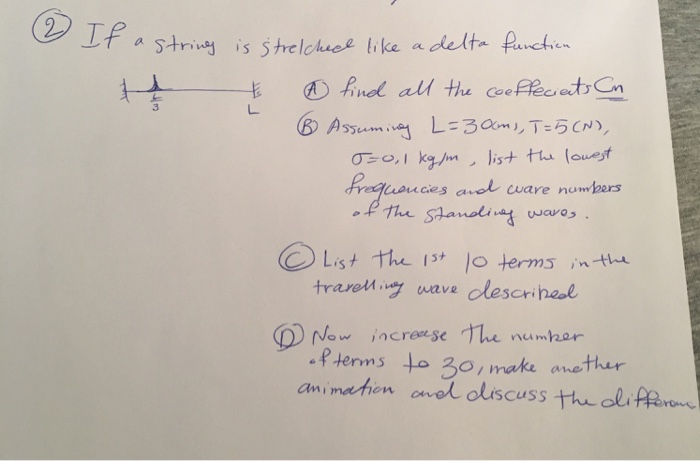 ② If a string is stretched like a delta function
L/3 L
Ⓐ find all the coeffeciats Cn
Ⓑ Assuming L=30(m), T=5(N),
σ=0,1 kg/m, list the lowest
frequencies and wave numbers
of the standing waves.
Ⓒ List the 1st 10 terms in the
travelling wave described
Ⓓ Now increase the number
of terms to 30, make another
animation and discuss the differenc